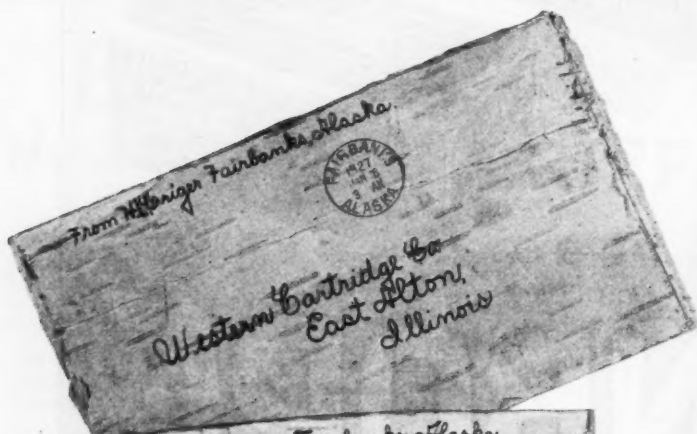 From Heriger Fairbanks, Alaska.
FAIRBANKS
1927
3 AM
ALASKA
Western Cartridge Co
East Alton,
Illinois
Alaska